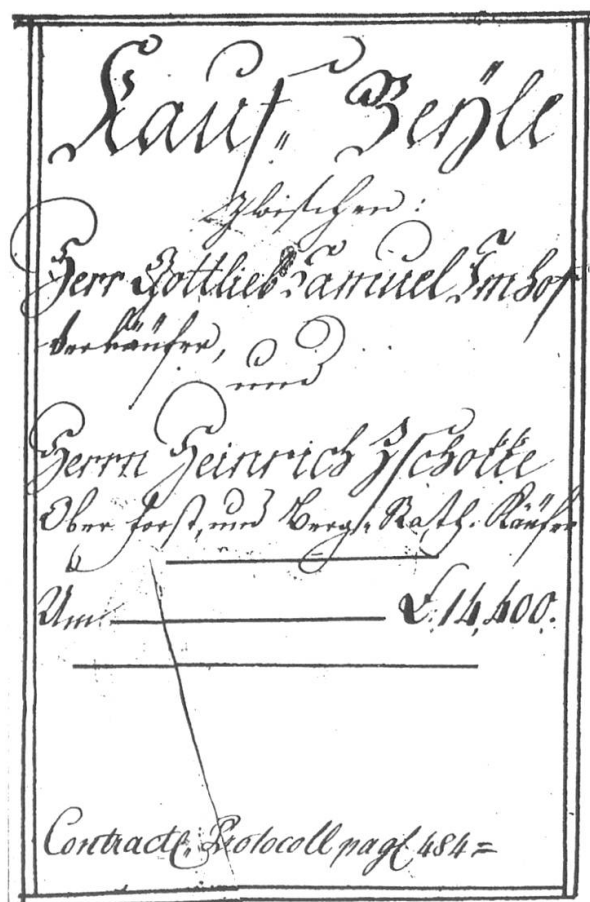 Kauf„ Beÿle
Zwischen:
Herr Gottlieb Samuel Imhof
Verkäufer,
und
Herrn Heinrich Zschokke
Ober Forst„ und Berg„ Rath. Käufer
Um £.14,400.
Contracte„ Protocoll pag 484=